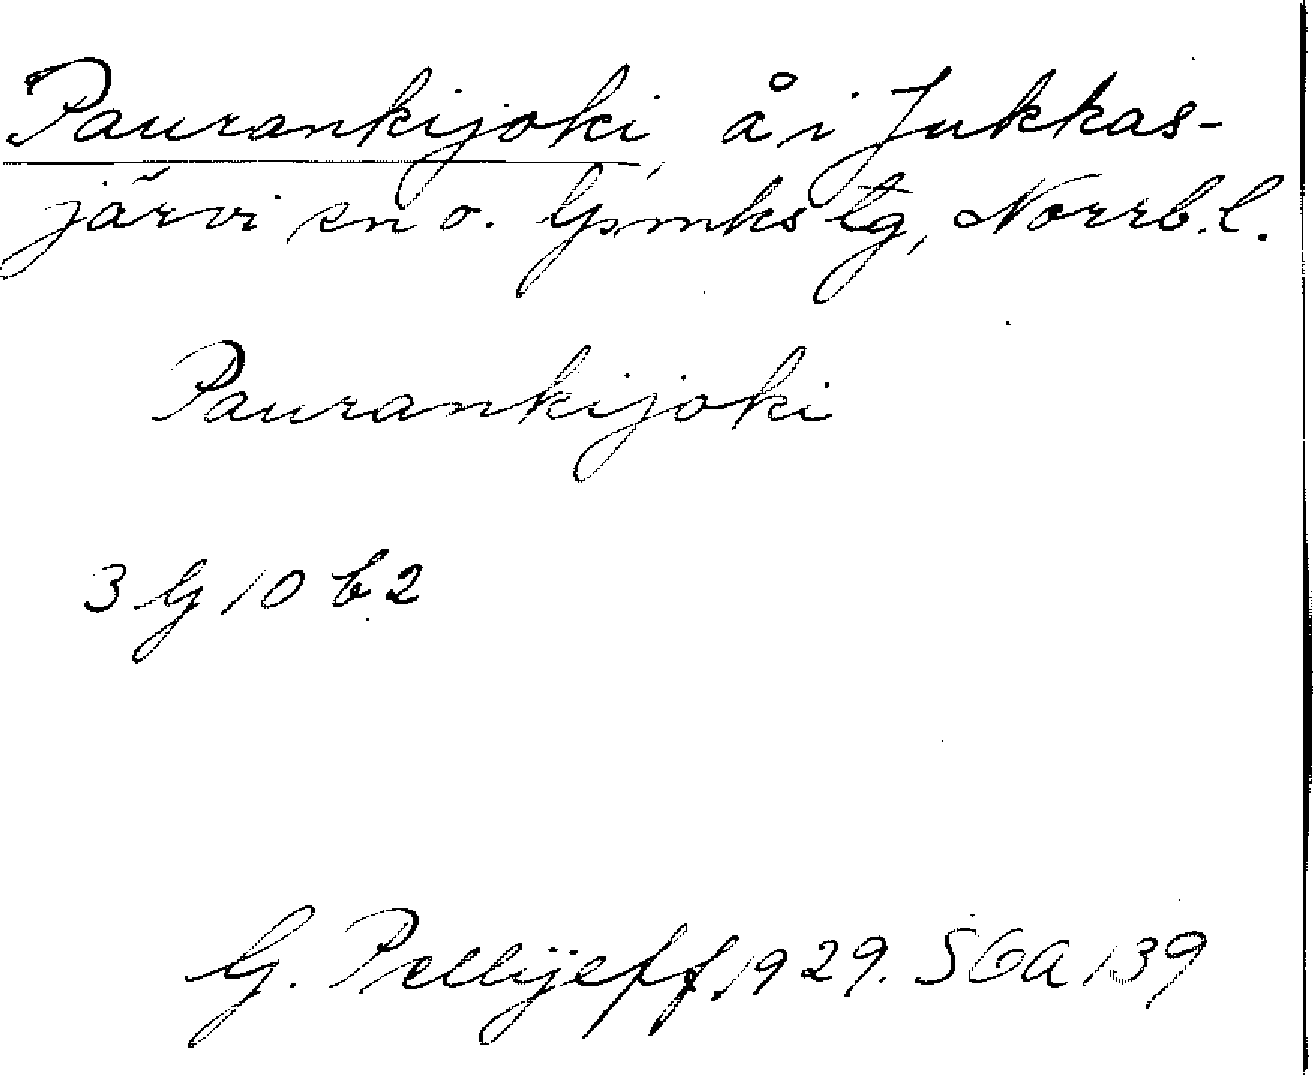 Paurankijoki, å i Jukkas-
järvi sn o. Gsmks tg, Norrb. l.
Paurankijoki
3 G 10 b 2
G. Pellijeff, 1929. SOA 139